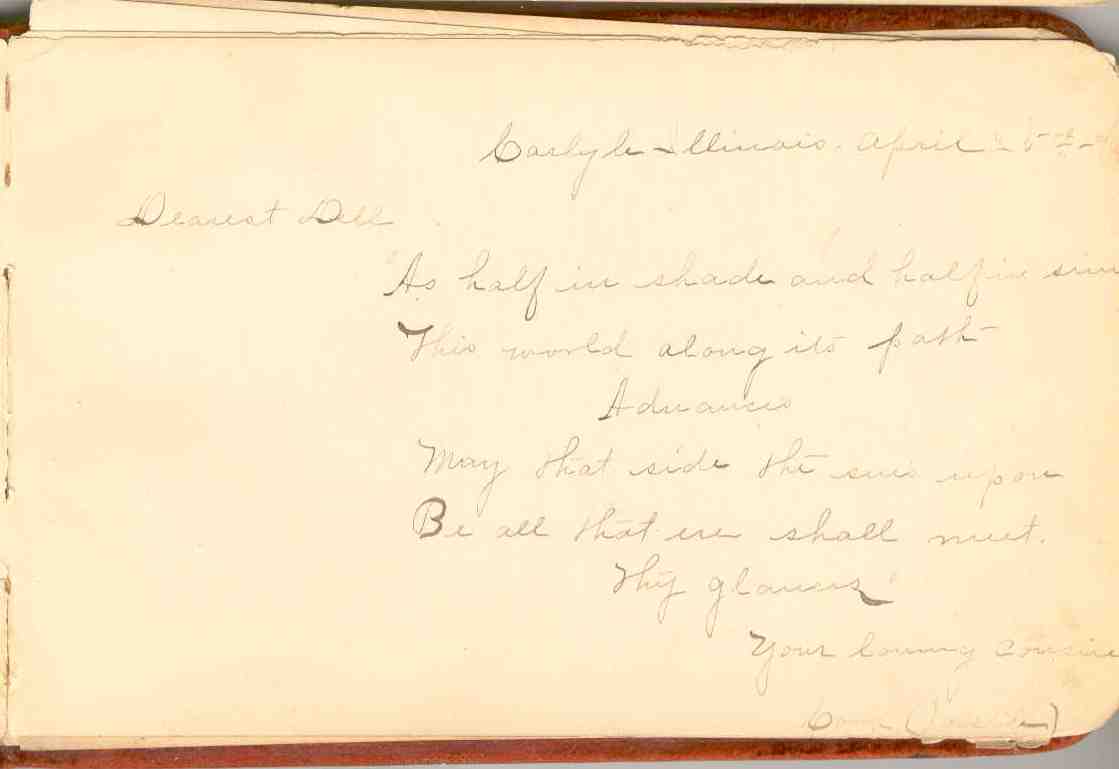 Carlyle Illinois. April
Dearest Dell
"As half in shade and half in sun
This world along its path
Advances
May that side the sun's upon
Be all that ere shall meet.
Thy glances"
Your loving cousin